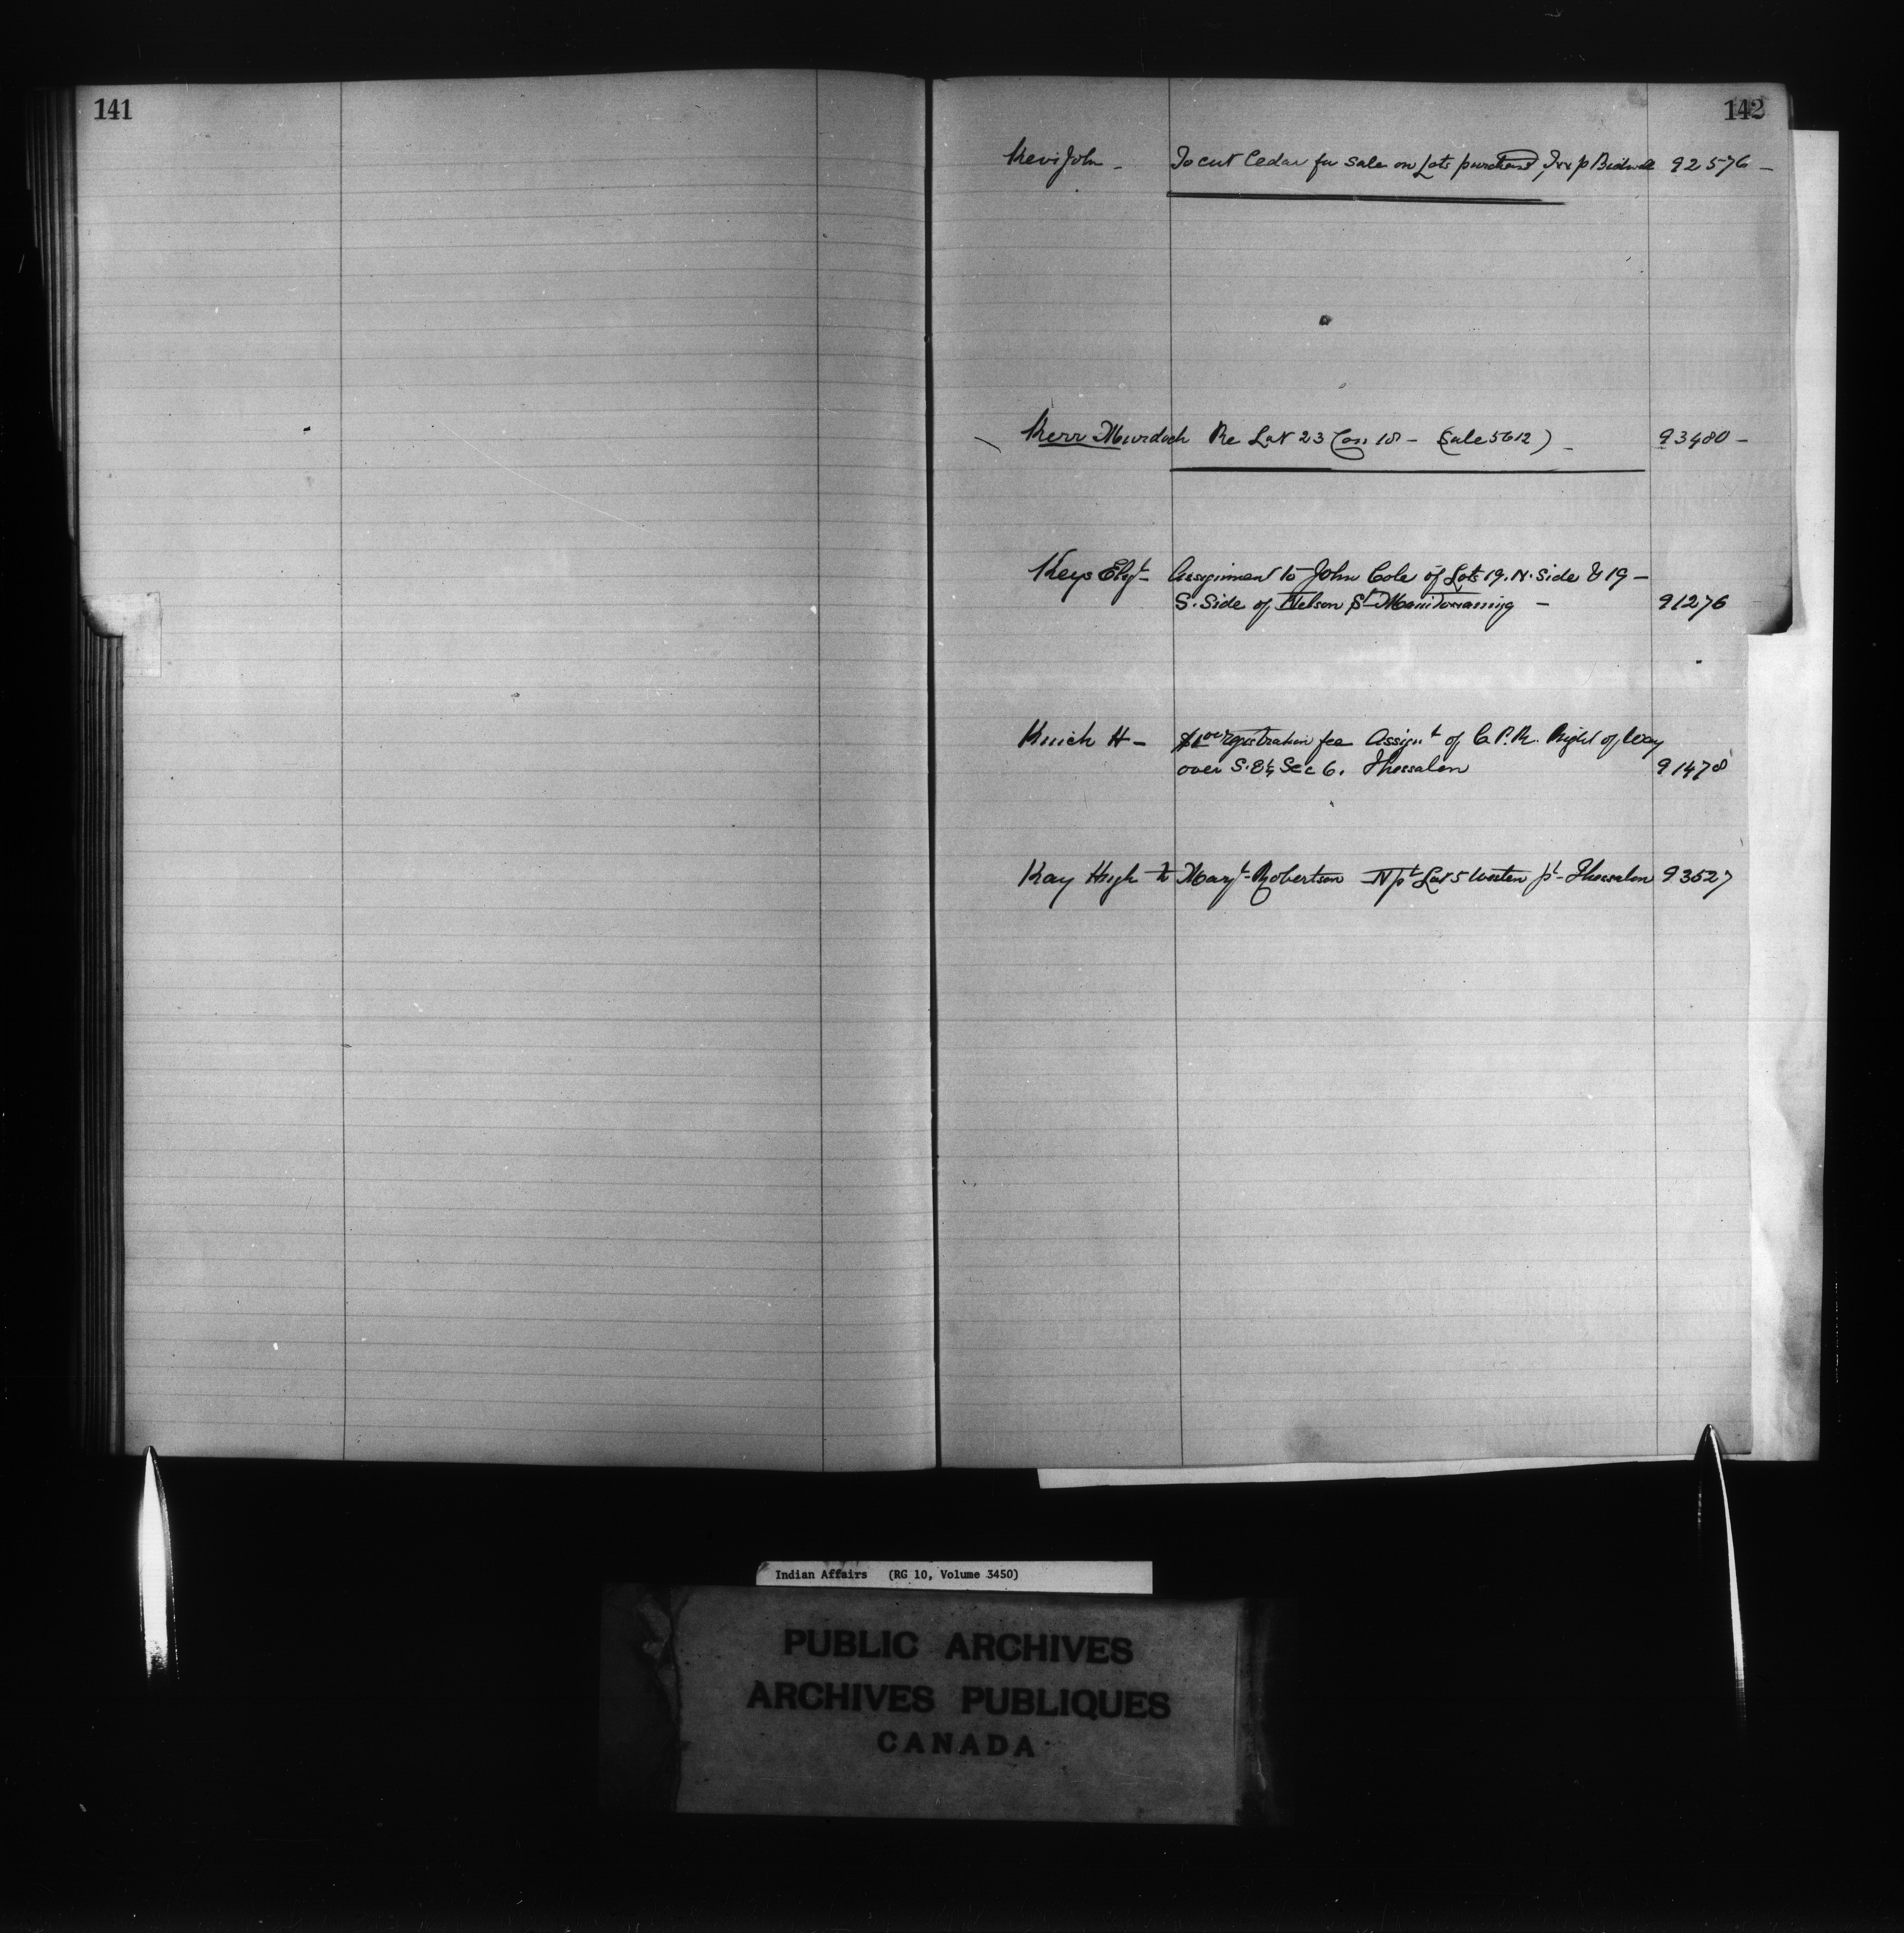 141
142
Kevi John - To cut Cedar for Sale on Lots purchased Twp Bidwell 92576 -
Kerr Murdoch Re Lot 23 Con 18 - (Sale 5612) - 93480 -
Keys Elizt - Assignment to John Cole of Lots 19. N. Side & 19 -
S. Side of Nelson St Manitowaning - 91276
H - $1 00 registration fee Assignt of C.P.R. Right of Way
over S.E ¼ Sec 6. Thessalon 91478
Kay Hugh to Margt Robertson N pt Lot 5 Western pt - Thessalon 93527
Indian Affairs (RG 10, Volume 3450)
PUBLIC ARCHIVES
ARCHIVES PUBLIQUES
CANADA